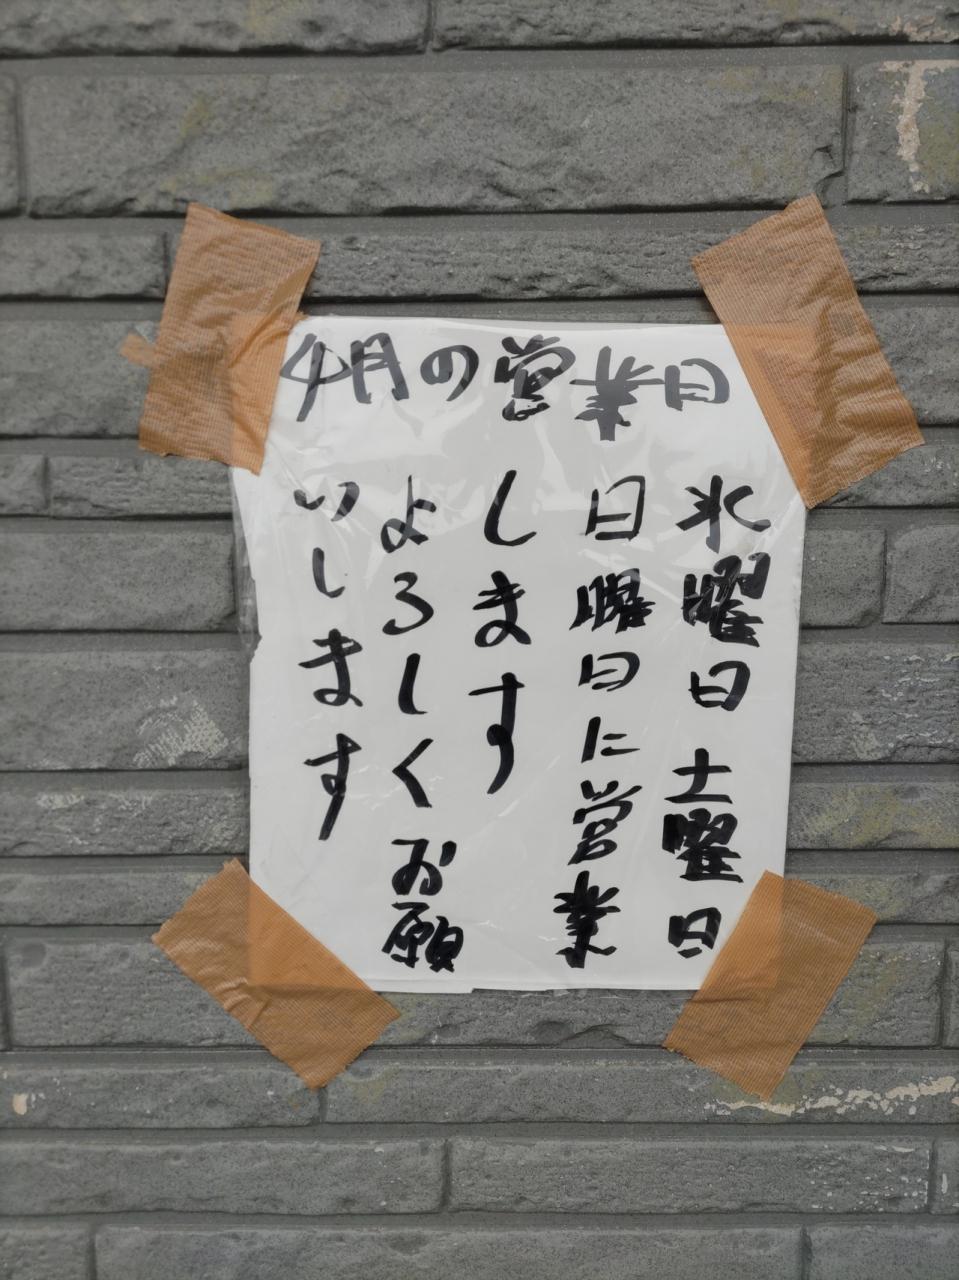 4月の営業日
水曜日 土曜日
日曜日に営業
します
よろしくお願
いします